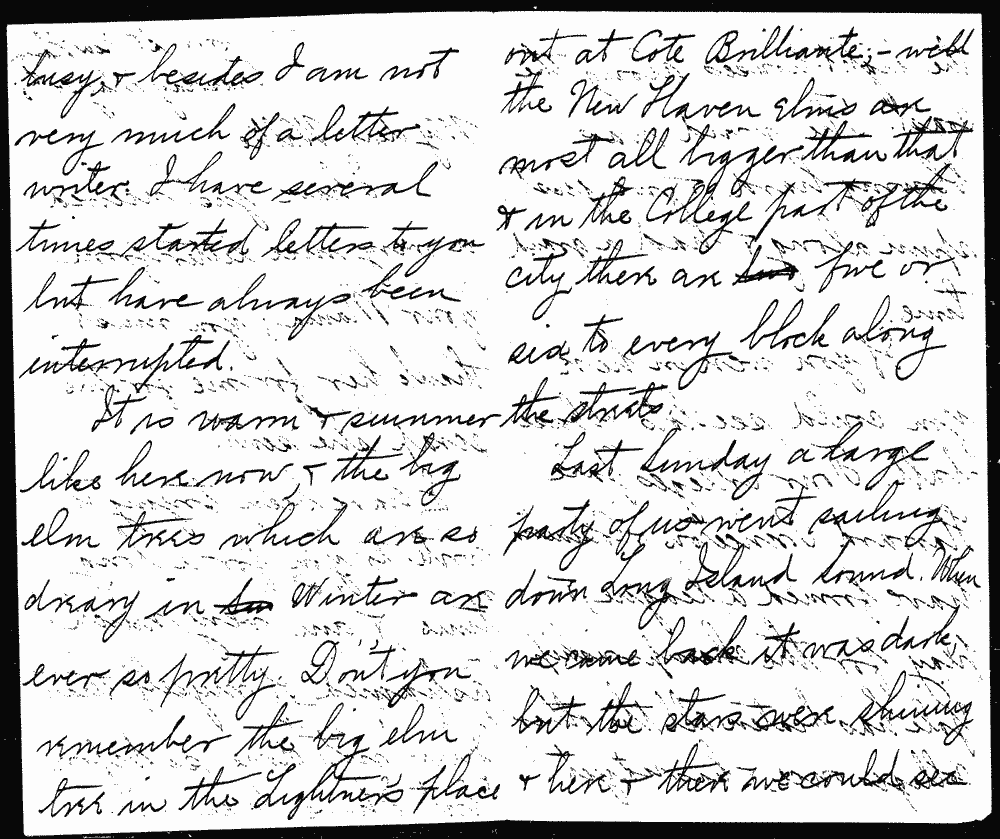 busy, & besides I am not
very much of a letter
writer. I have several
times started letters to you
but have always been
interrupted.
It is warm & summer
like here now, & the big
elm trees which are so
dreary in Winter are
ever so pretty. Don't you
remember the big elm
tree in the Lightner's place
out at Cote Brilliante; - well
the New Haven elms are
most all bigger than that
& in the College part of the
city there are five or
six to every block along
the streets
Last Sunday a large
party of us went sailing
down Long Island Sound. When
we came back it was dark,
but the stars were shining
& here & there we could see